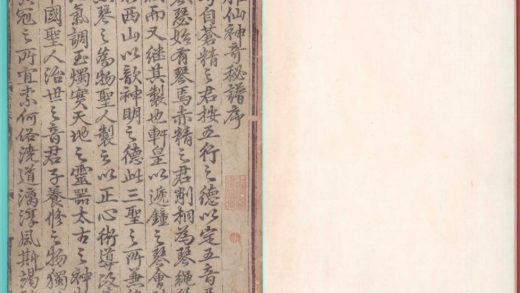 仙神奇秘譜序
自蒼精之君按五行之德以定五音
琴瑟始有琴焉赤精之君削桐為琴繩
而又继其製也軒皇以遞鐘之琴會
西山以歆神明之德此三聖之所兼
琴之為物聖人製之以正心術導政
氣調玉燭實天地之靈器太古之神
國聖人治世之音君子養修之物獨
冠之所宜柰何俗澆道漓淳風斯竭